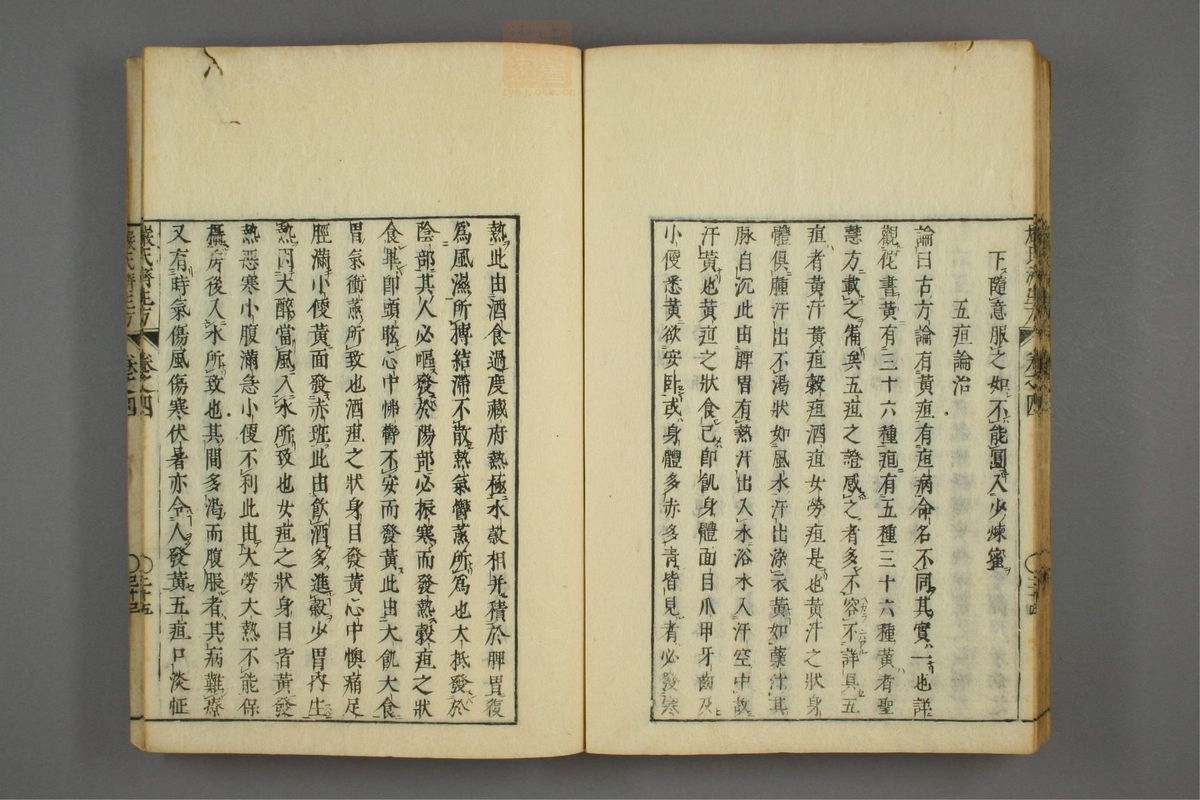 下隨意服之如不能圓入少煉蜜
五疸論治
論曰古方論有黃疸有疸病命名不同其實一也詳
觀從書黃有三十六種疸有五種三十六種黃者聖
惠方載之備矣五疸之證感之者多不容不詳具五
疸者黃汗黃疸穀疸酒疸女勞疸是也黃汗之狀身
體俱腫汗出不渴狀如風水汗出染衣黃如蘗汁其
脉自沉此由脾胃有熱汗出入水浴水入汗空中故
汗黃也黃疸之狀食已即飢身體面目爪甲牙齒及
小便悉黃欲安卧或身體多赤多青皆見者必發寒
熱此由酒食過度藏府熱極水穀相并積於脾胃復
為風濕所搏結滯不散熱氣鬱蒸所為也大抵發於
陰部其人必嘔發於陽部必振寒而發熱穀疸之狀
食畢即頭眩心中怫鬱不安而發黃此由大飢大食
胃氣衝蒸所致也酒疸之狀身目發黃心中懊痛足
脛滿小便黃面發赤班此由飲酒多進穀少胃內生
熱因大醉當風入水所致也女疸之狀身目皆黃發
熱惡寒小腹滿急小便不利此由大勞大熱不能保
攝房後入水所致也其間多渴而腹脹者其病難療
又有時氣傷風傷寒伏暑亦令人發黃五疸口淡怔
嚴氏濟生方 卷之四